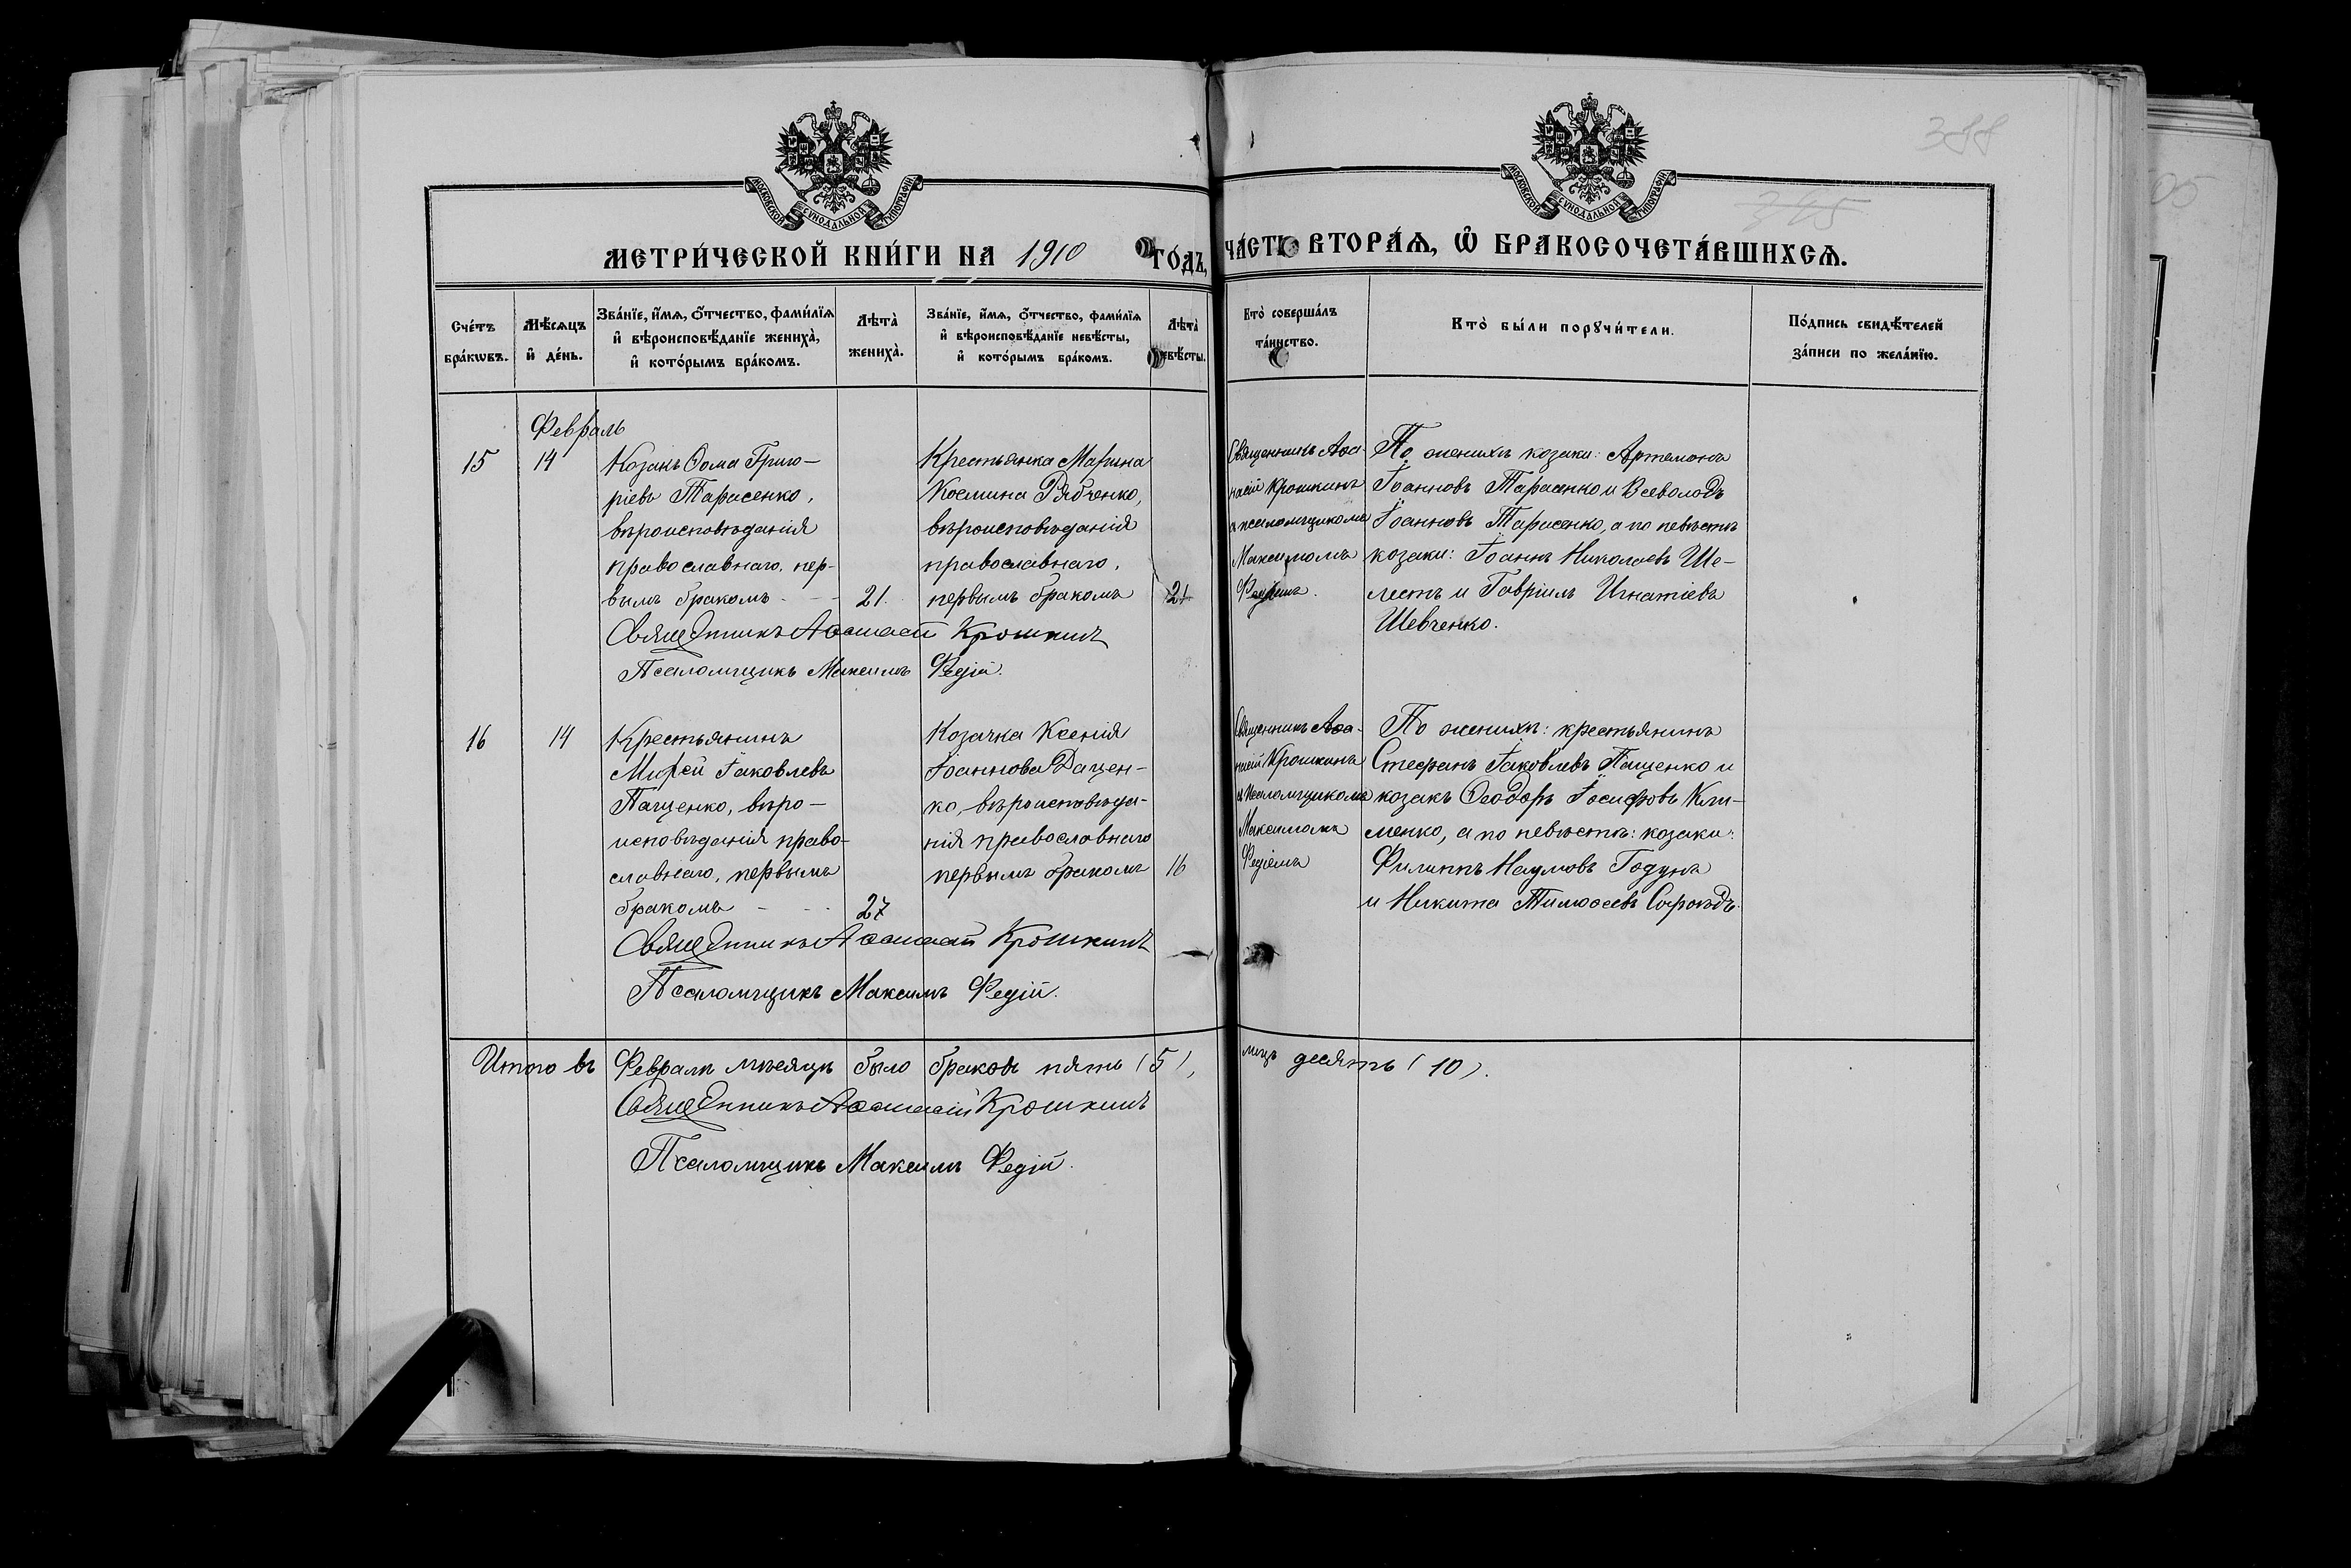 388
345
МОСКОВСКОЙ СѴНОДАЛЬНОЙ ТИПОГРАФІИ
МОСКОВСКОЙ СѴНОДАЛЬНОЙ ТИПОГРАФІИ
МЕТРИ́ЧЕСКОЙ КНИ́ГИ НА 1910 ГО́ДЪ,
ЧА́СТЬ ВТОРА́Ѧ, Ѡ҆ БРАКОСОЧЕТА́ВШИХСѦ.
Сче́тъ
бра́кѡвъ.
Мѣ́сѧцъ
и҆ де́нь.
Зва́нїе, и҆́мѧ, ѻ҆́тчество, фами́лїѧ
и҆ вѣроисповѣ́данїе жениха̀,
и҆ кото́рымъ бра́комъ.
Лѣта̀
жениха̀.
Зва́нїе, и҆́мѧ, ѻ҆́тчество, фами́лїѧ
и҆ вѣроисповѣ́данїе невѣ́сты,
и҆ кото́рымъ бра́комъ.
Лѣта̀
невѣ́сты.
Кто̀ соверша́лъ
та́инство.
Кто̀ бы́ли порꙋчи́тели.
По́дпись свидѣ́телей
за́писи по жела́нїю.
Февраль
15
14
Козакъ Ѳома Григо-
ріевъ Тарасенко,
вѣроисповѣданія
православнаго, пер-
вымъ бракомъ
21.
Крестьянка Марина
Космина Рябченко,
вѣроисповѣданія
православнаго,
первымъ бракомъ
21
Священникъ Аѳа-
насій Крошкинъ
съ псаломщикомъ
Максимомъ
Федіемъ.
По женихѣ козаки: Артемонъ
Іоанновъ Тарасенко и Всеволодъ
Іоанновъ Тарасенко, а по невѣстѣ
козаки: Іоаннъ Николаевъ Ше-
лестъ и Гавріилъ Игнатіевъ
Шевченко.
Священникъ Аѳанасій Крошкинъ
Псаломщикъ Максимъ Федій.
16
14
Крестьянинъ
Іаковлевъ
Пащенко, вѣро-
исповѣданія право-
славнаго, первымъ
бракомъ
27
Козачка Ксенія
Іоаннова Дацен-
ко, вѣроисповѣда-
нія православнаго
первымъ бракомъ
16
Священникъ Аѳа-
насій Крошкинъ
съ псаломщикомъ
Максимомъ
Федіемъ
По женихѣ: крестьянинъ
Стефанъ Іаковлевъ Пащенко и
козакъ Ѳеодоръ Іосифовъ Кли-
менко, а по невѣстѣ: козаки:
Филиппъ Наумовъ Годунъ
и Никита Тимоѳеевъ
Священникъ Аѳанасій Крошкинъ
Псаломщикъ Максимъ Федій.
Итого въ Февралѣ мѣсяцѣ было браковъ пять (5), лицъ десять (10).
Священникъ Аѳанасій Крошкинъ
Псаломщикъ Максимъ Федій.